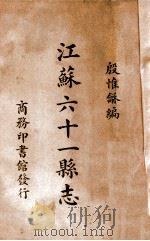 殷惟龢編
江蘇六十一縣志
商務印書館發行